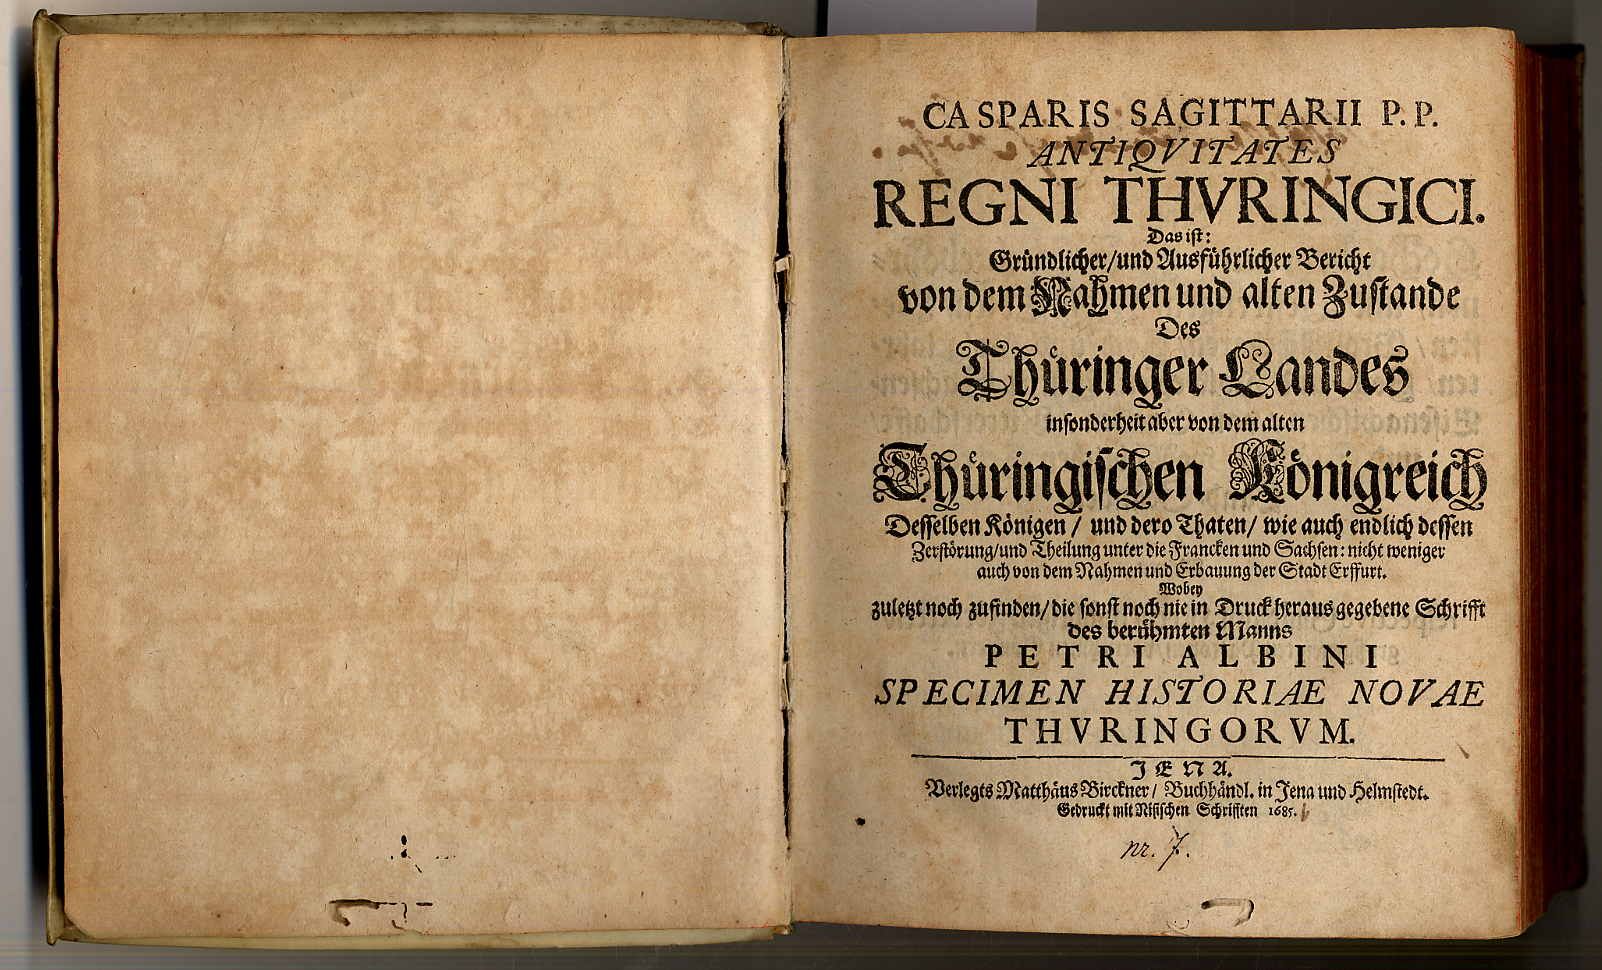 CASPARIS SAGITTARII P. P.
ANTIQVITATES
REGNI THVRINGICI.
Das ist:
Gründlicher/und Ausführlicher Bericht
von dem Nahmen und alten Zustande
Des
Thüringer Landes
insonderheit aber von dem alten
Thüringischen Königreich
Desselben Königen / und dero Thaten / wie auch endlich dessen
Zerstörung/und Theilung unter die Francken und Sachsen: nicht weniger
auch von dem Nahmen und Erbauung der Stadt Erffurt.
Wobey
zuletzt noch zufinden/die sonst noch nie in Druck heraus gegebene Schrifft
des berühmten Manns
PETRI ALBINI
SPECIMEN HISTORIAE NOVAE
THVRINGORVM.
JENA.
Verlegts Matthäus Birckner / Buchhändl. in Jena und Helmstedt.
Gedruckt mit Nisischen Schrifften 1685.
nr. 7.